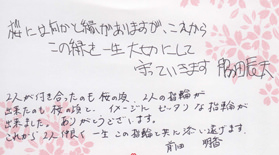 桜には何かと縁がありますが、これから
この縁を一生大切にして
守っていきます
2人が付き合ったのも桜の頃、2人の指輪が
出来たのも桜の頃と、イメージにピッタリな指輪が
出来ました。ありがとうございます。
これから2人仲良く一生この指輪と共に添い遂げます。